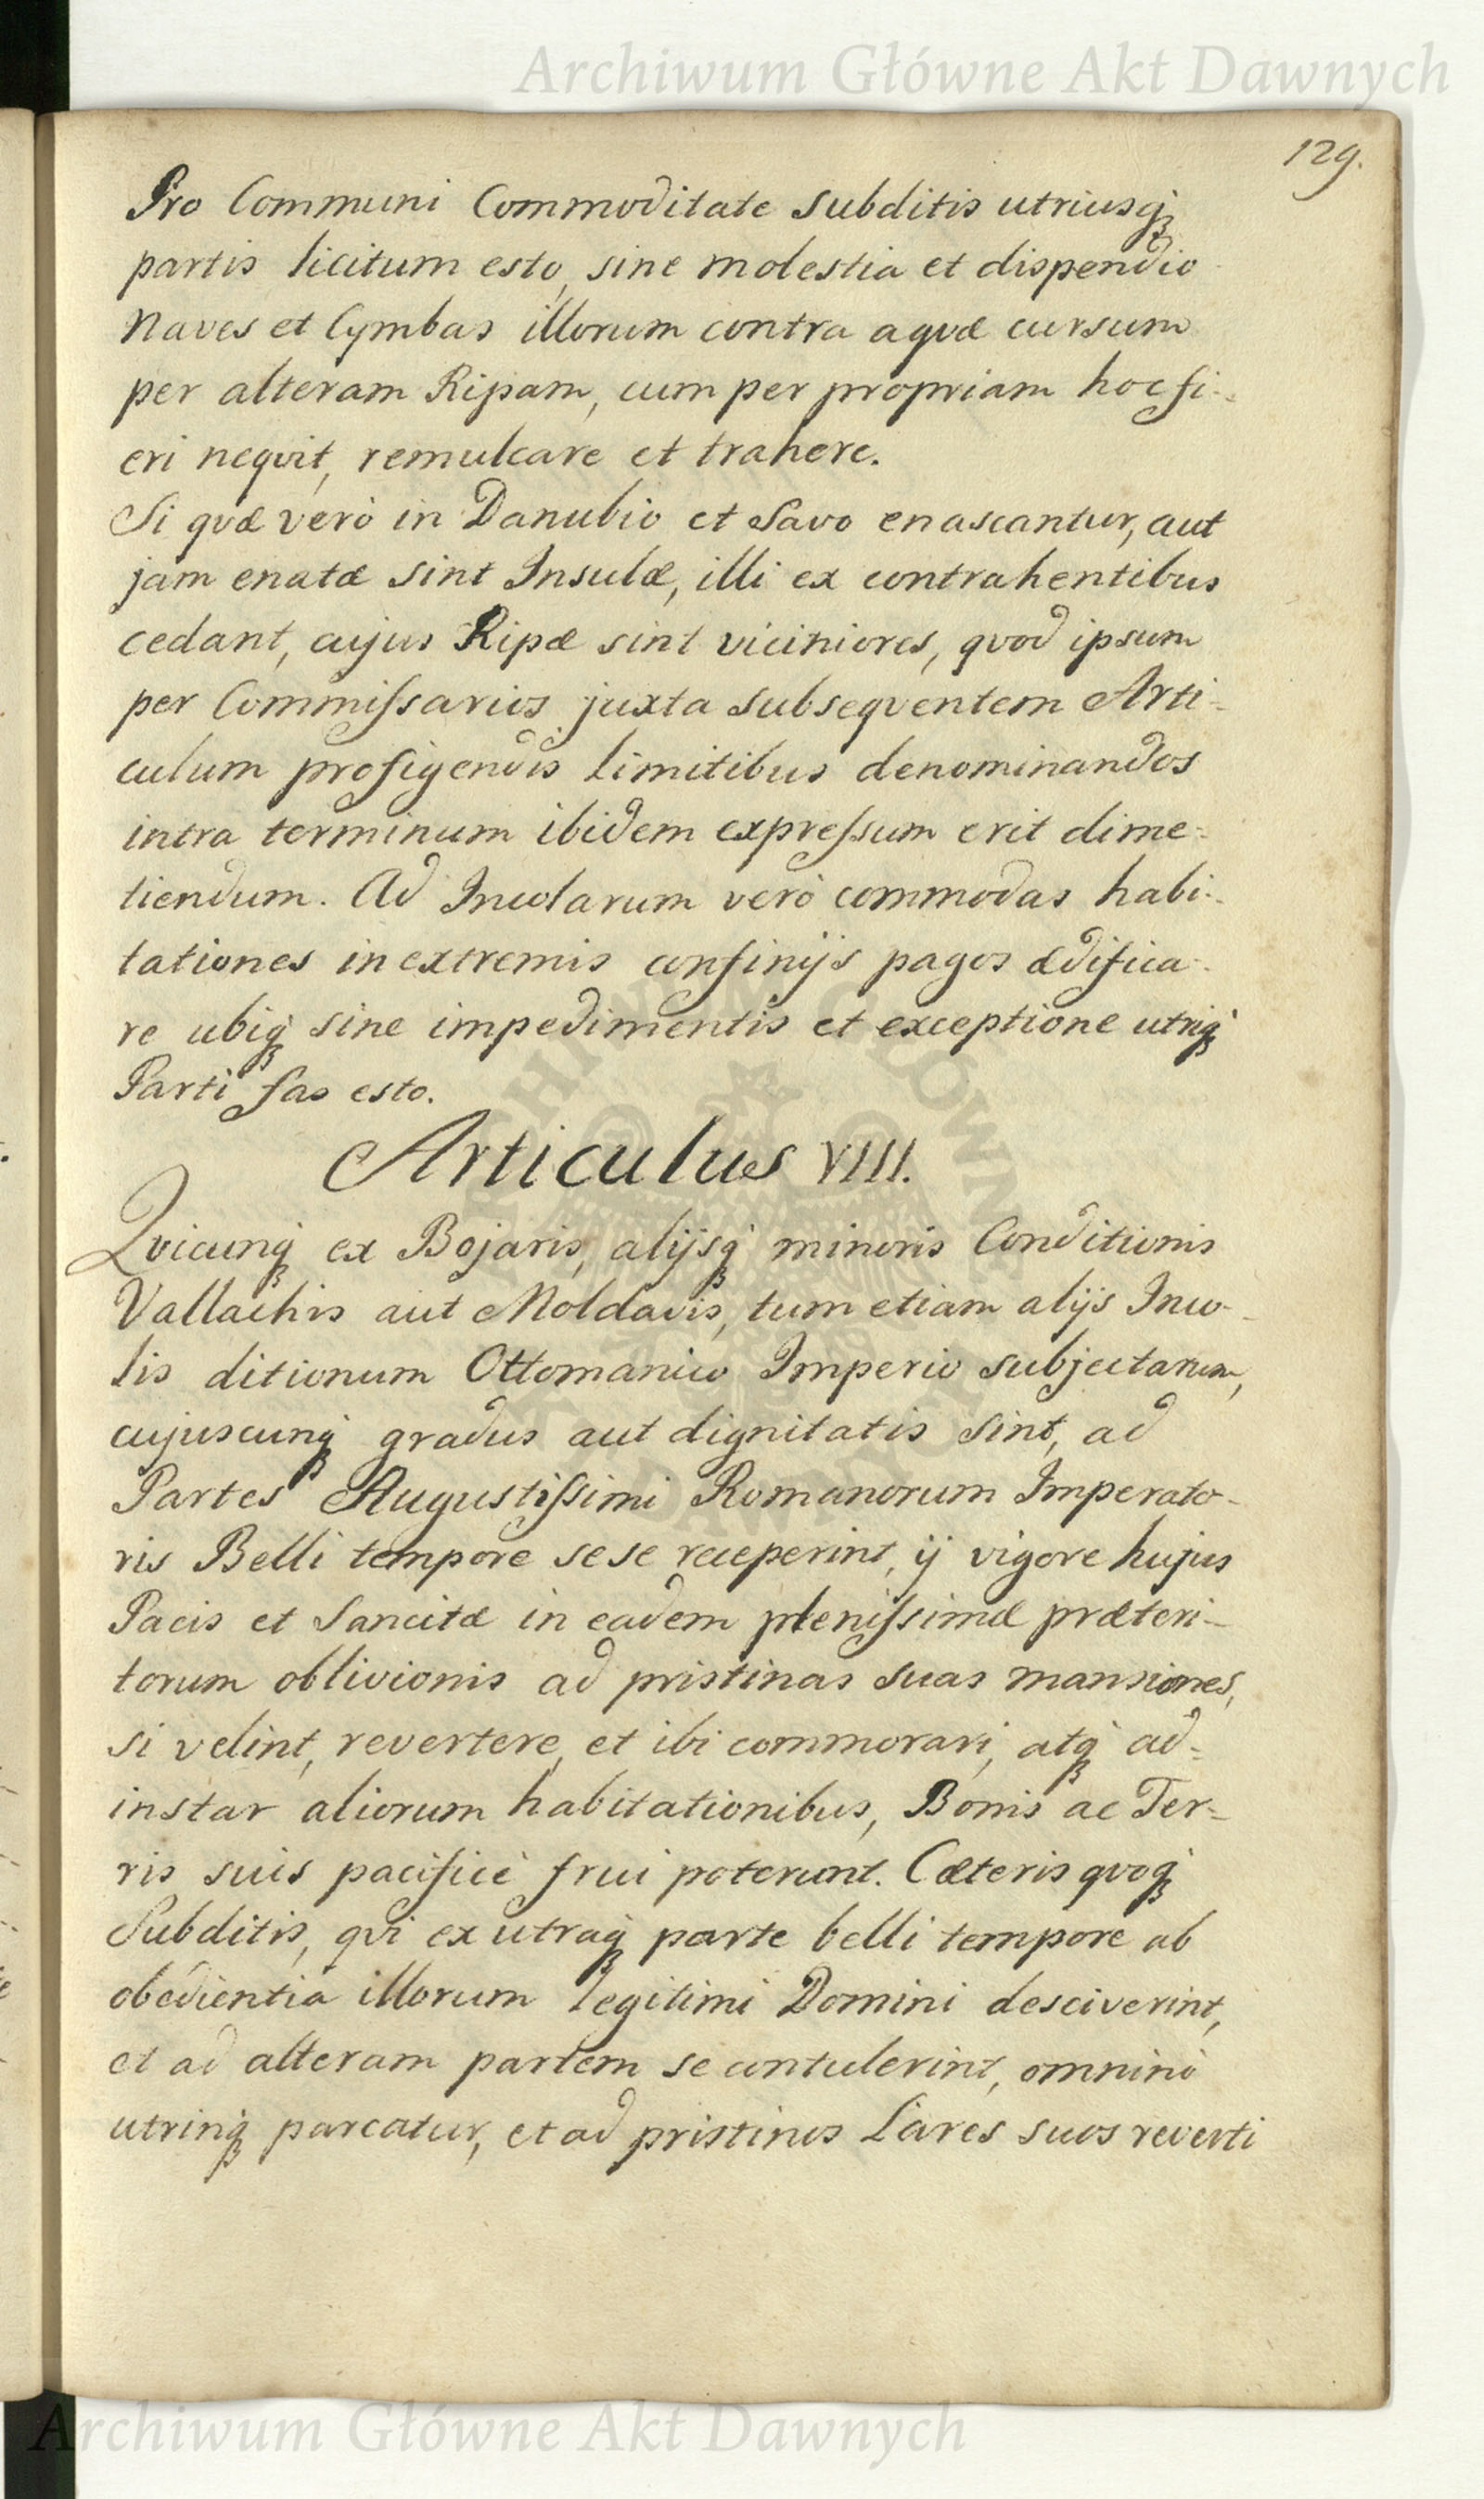 Archiwum Główne Akt Dawnych
129.
Pro Communi Commoditate subditis utriusq;
partis licitum esto, sine molestia et dispendio
Naves et Cymbas illorum contra aqvæ cursum
per alteram Ripam, cum per propriam hoc fi-
eri neqvit, remulcare et trahere.
Si qvæ verò in Danubio et Savo enascantur, aut
jam enatæ sint Insulæ, illi ex contrahentibus
cedant, cujus Ripæ sint viciniores, qvod ipsum
per Commissarios juxta subseqventem Arti-
culum profigendis limitibus denominandos
intra terminum ibidem expressum erit dime-
tiendum. Ad Incolarum verò commodas habi-
tationes in extremis confinijs pagos ædifica-
re ubiq; sine impedimentis et exceptione utriq;
Parti fas esto.
Articulus VIII.
Qvicunq; ex Bojaris, alijsq; minoris Conditionis
Vallachis aut Moldavis, tum etiam alijs Inco-
lis ditionum Ottomanico Imperio subjectarum,
cujuscunq; gradus aut dignitatis sint, ad
Partes Augustissimi Romanorum Imperato-
ris Belli tempore sese receperint, ij vigore hujus
Pacis et Sancitæ in eadem plenissimæ præteri-
torum oblivionis ad pristinas suas mansiones,
si velint, revertere, et ibi commorari, atq; ad-
instar aliorum habitationibus, Bonis ac Ter-
ris suis pacificè frui poterunt. Cæteris qvoq;
Subditis, qvi ex utraq; parte belli tempore ab
obedientia illorum legitimi Domini desciverint,
et ad alteram partem se contulerint, omninò
utrinq; parcatur, et ad pristinos Lares suos reverti
Archiwum Główne Akt Dawnych